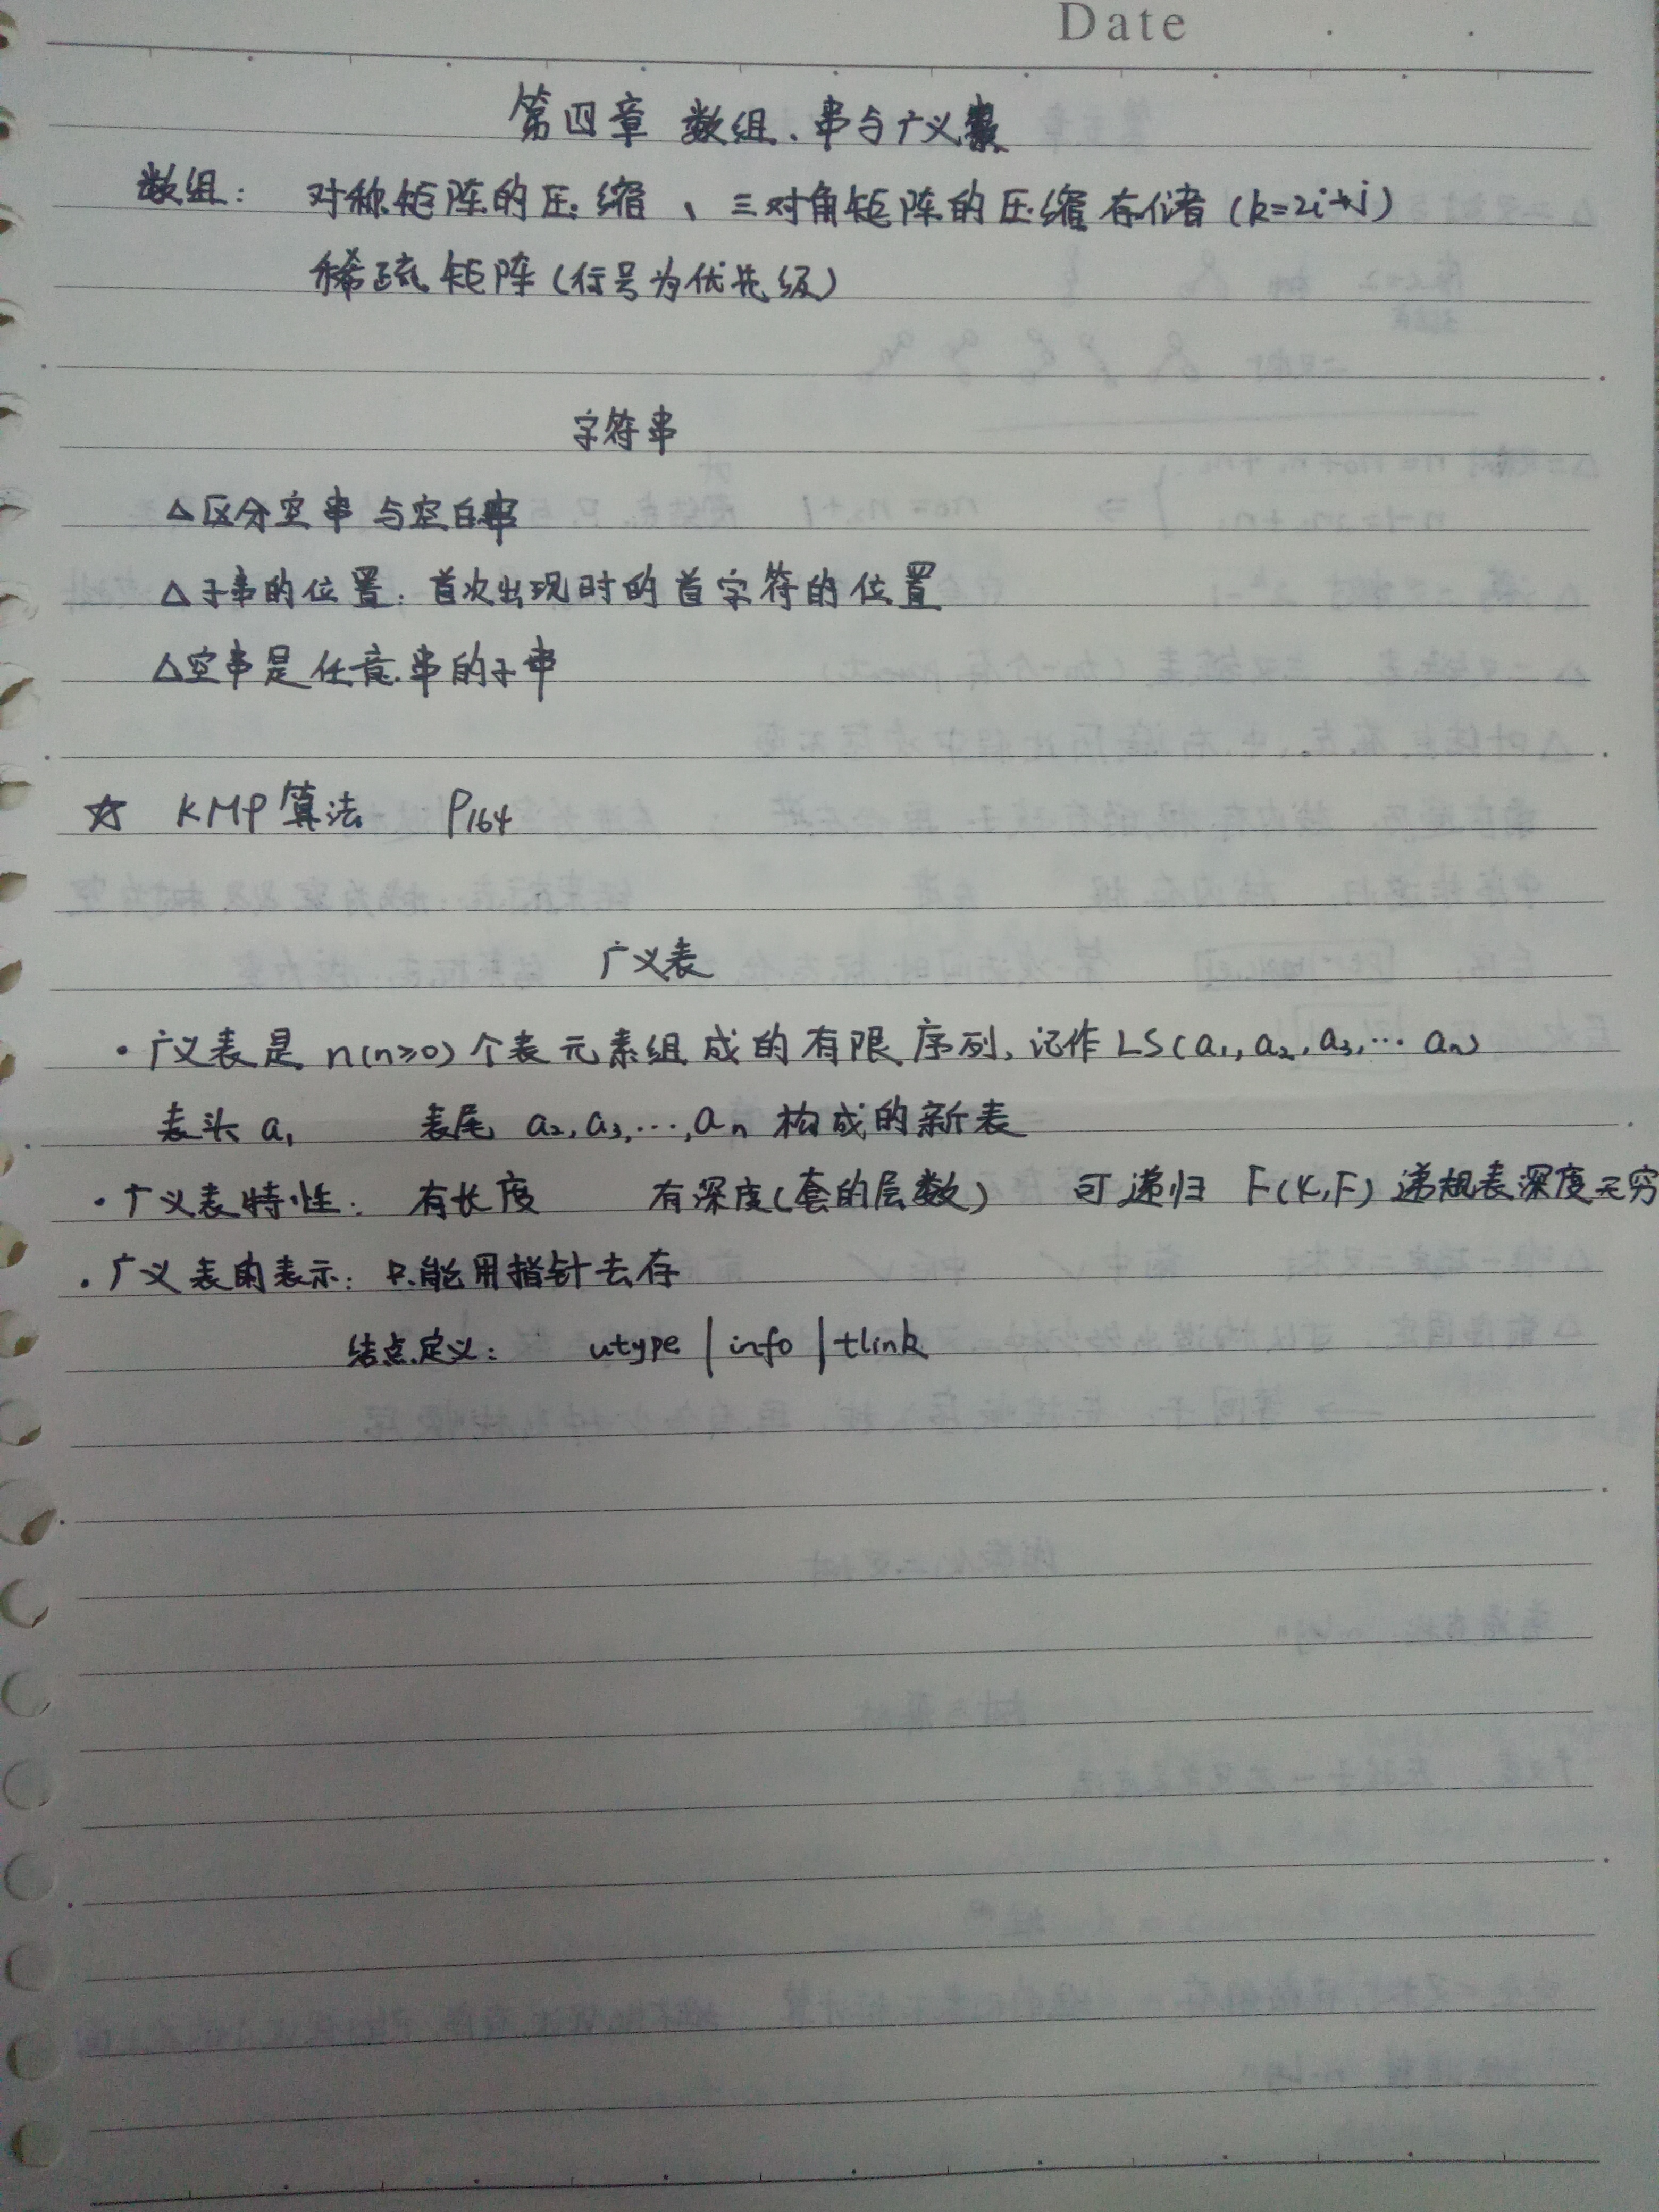 Date
第四章 数组、串与广义表
数组: 对称矩阵的压缩、三对角矩阵的压缩存储(k=2i+j)
稀疏矩阵(行号为优先级)
字符串
△区分空串与空白串
△子串的位置:首次出现时的首字符的位置
△空串是任意串的子串
☆ KMP算法 P164
广义表
·广义表是n(n≥0)个表元素组成的有限序列,记作LS(a₁,a₂,a₃,…aₙ)
表头a₁ 表尾 a₂,a₃,…,aₙ构成的新表
·广义表特性: 有长度 有深度(套的层数) 可递归 F(K,F)递规表深度无穷
·广义表的表示:只能用指针去存
结点定义: utype|info|tlink